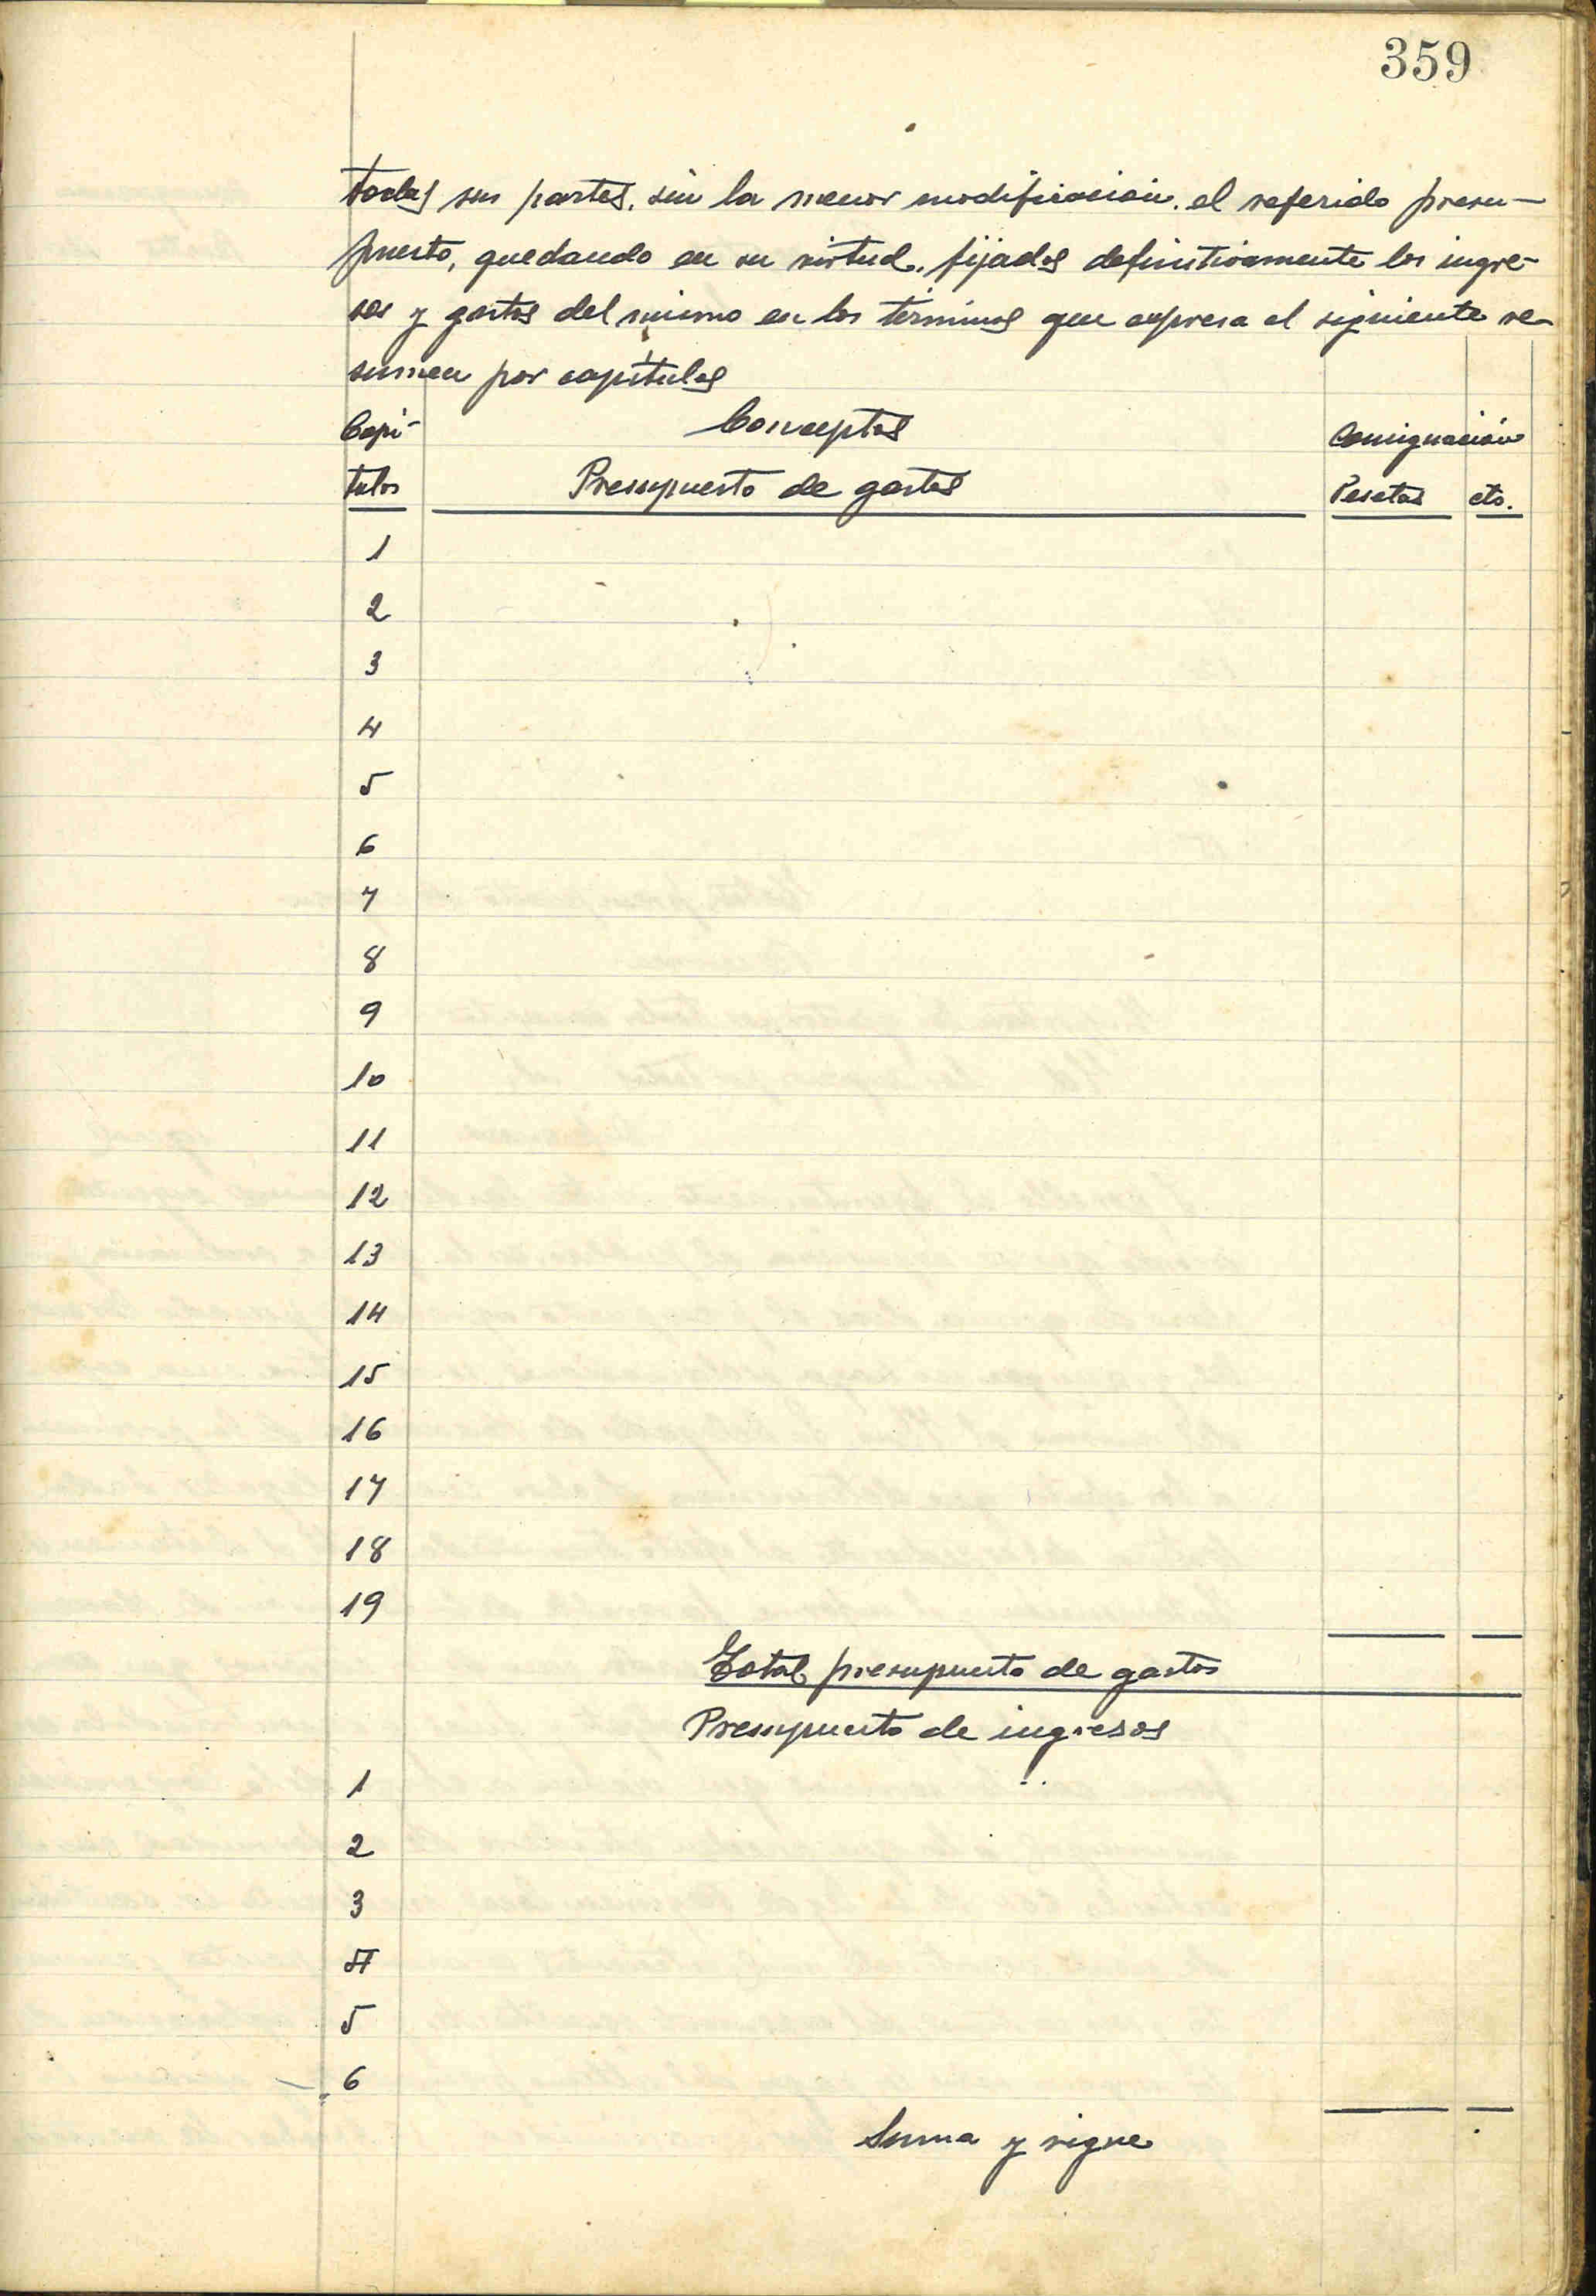 359
todas sus partes, sin la menor modificación, el referido presu-
puesto, quedando en su virtud, fijados definitivamente los ingre-
sos y gastos del mismo en los términos que expresa el siguiente re-
sumen por capítulos
Capí- Conceptos Consignación
tulos Presupuesto de gastos Pesetas cts.
1
2
3
4
5
6
7
8
9
10
11
12
13
14
15
16
17
18
19
Total presupuesto de gastos
Presupuesto de ingresos
1
2
3
4
5
6
Suma y sigue